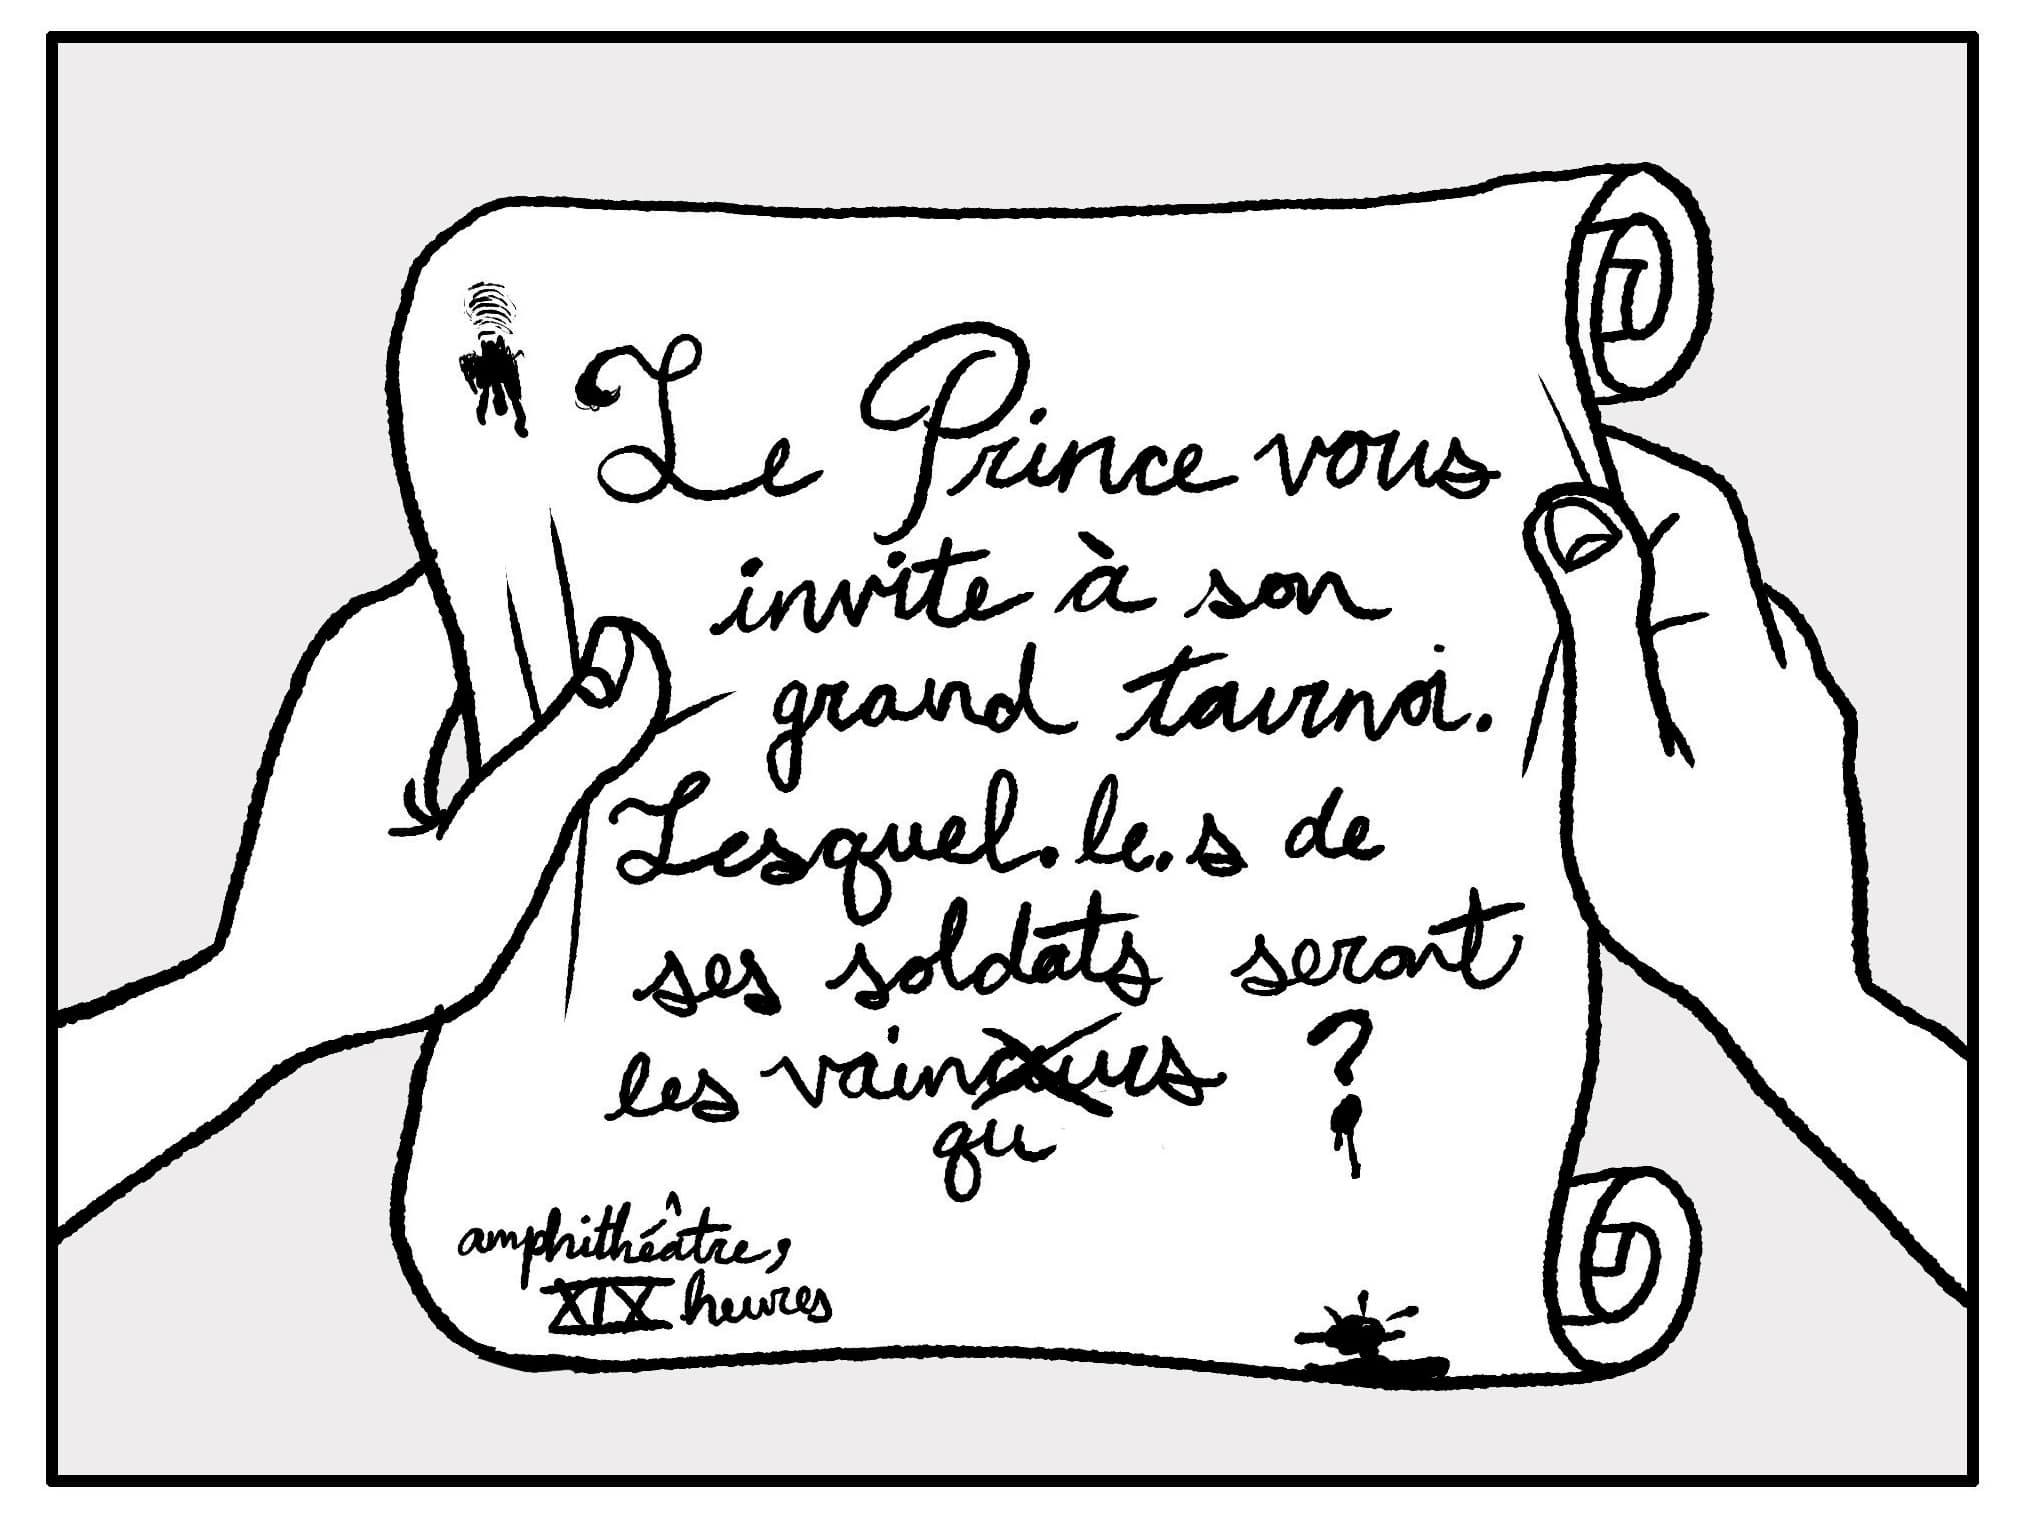 Le Prince vous
invite à son
grand tournoi.
Lesquel.le.s de
ses soldats seront
les vaincuurs ?
qu
amphithéâtre,
XIX heures